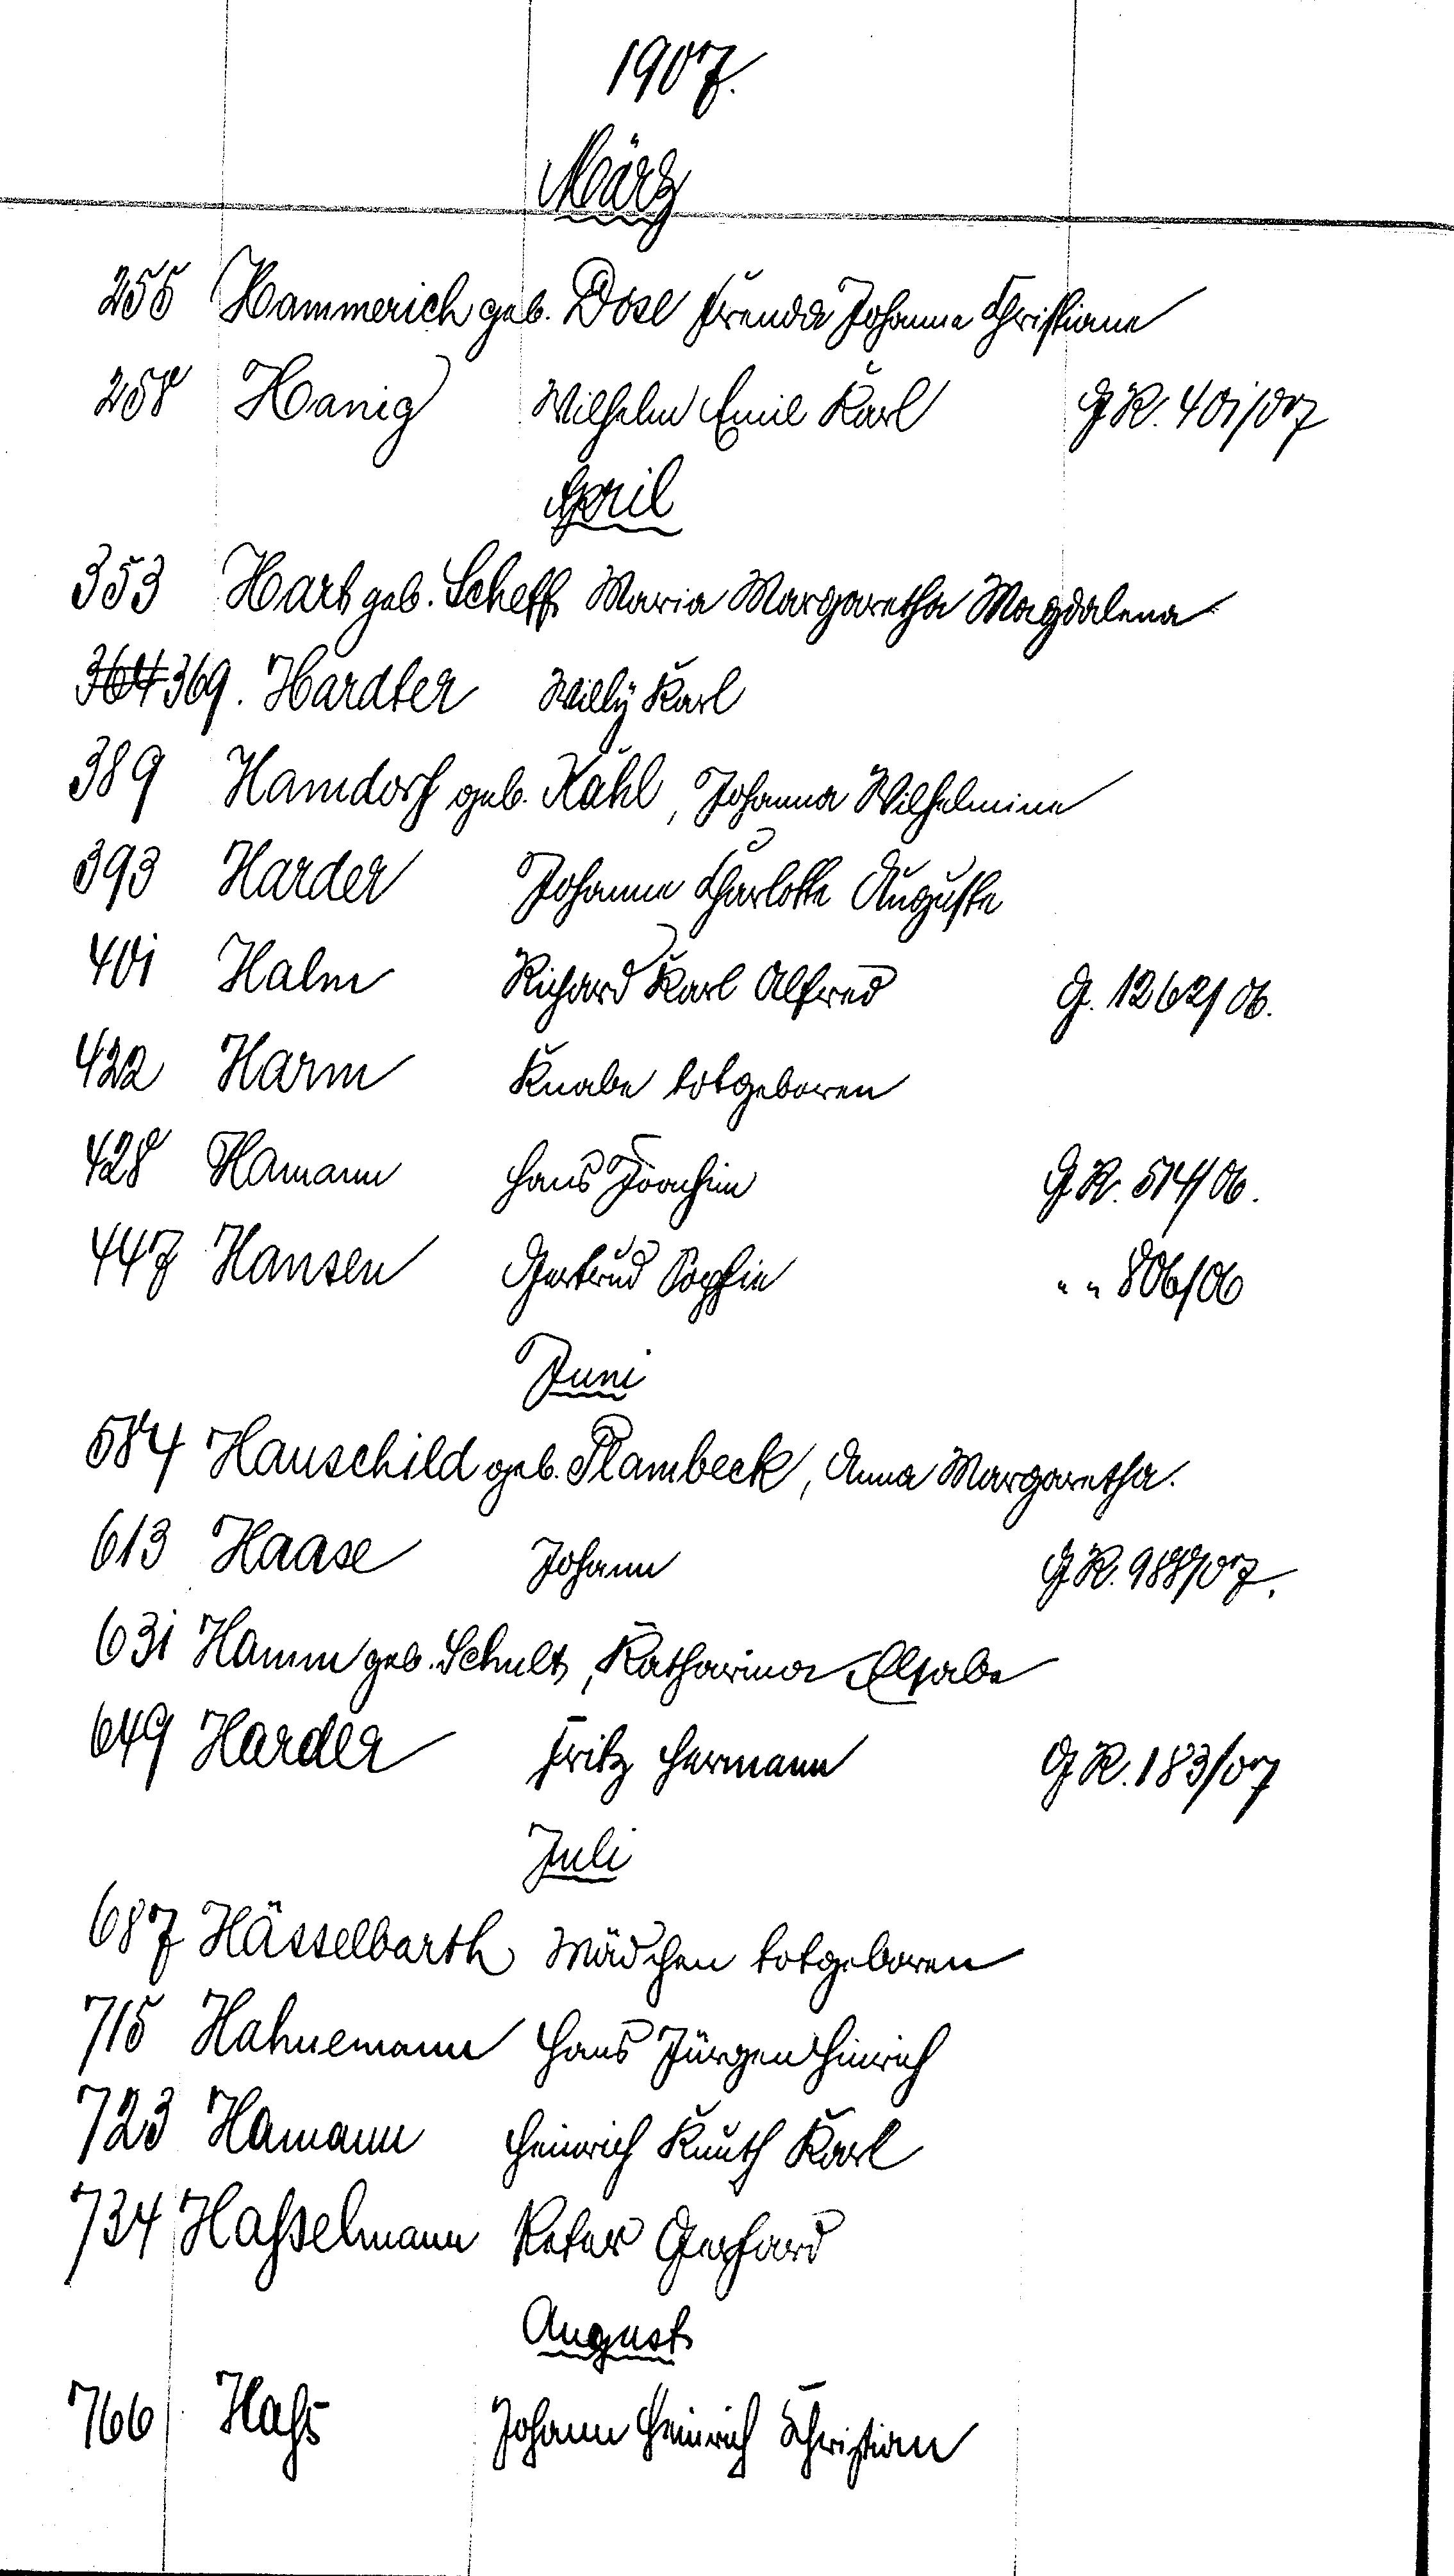 1907.
März
255 Hammerich geb. Dose Frauda Johanna Christiane
258 Hanig Wilhelm Emil Karl G.R. 401/07
April
353 Hart geb. Scheff Maria Margaretha Magdalena
364 369. Hardter Willy Karl
389 Hamdorf geb. Kähl, Johanna Wilhelmine
393 Harder Johanna Charlotte Auguste
401 Halm Richard Karl Alfred G. 1262/06.
422 Harm Knabe totgeboren
428 Hamann Hans Joachim G.R. 514/06.
447 Hansen Gertrud Sophie " " 806/06
Juni
584 Hauschild geb. Plambeck, Anna Margaretha.
613 Haase Johann G.R. 988/07.
631 Hamm geb. Schult, Katharina Elsabe
649 Harder Fritz Hermann G.R. 183/07
Juli
687 Hässelbarth Mädchen totgeboren
715 Hahnemann Hans Jürgen Hinrich
723 Hamann Heinrich Knuth Karl
734 Haßelmann Peter Gerhard
August
766 Haß Johann Heinrich Christian